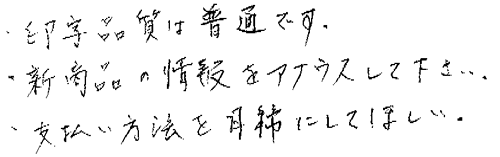 ・印字品質は普通です.
・新商品の情報をアナウスして下さい.
・支払い方法を月締にしてほしい.